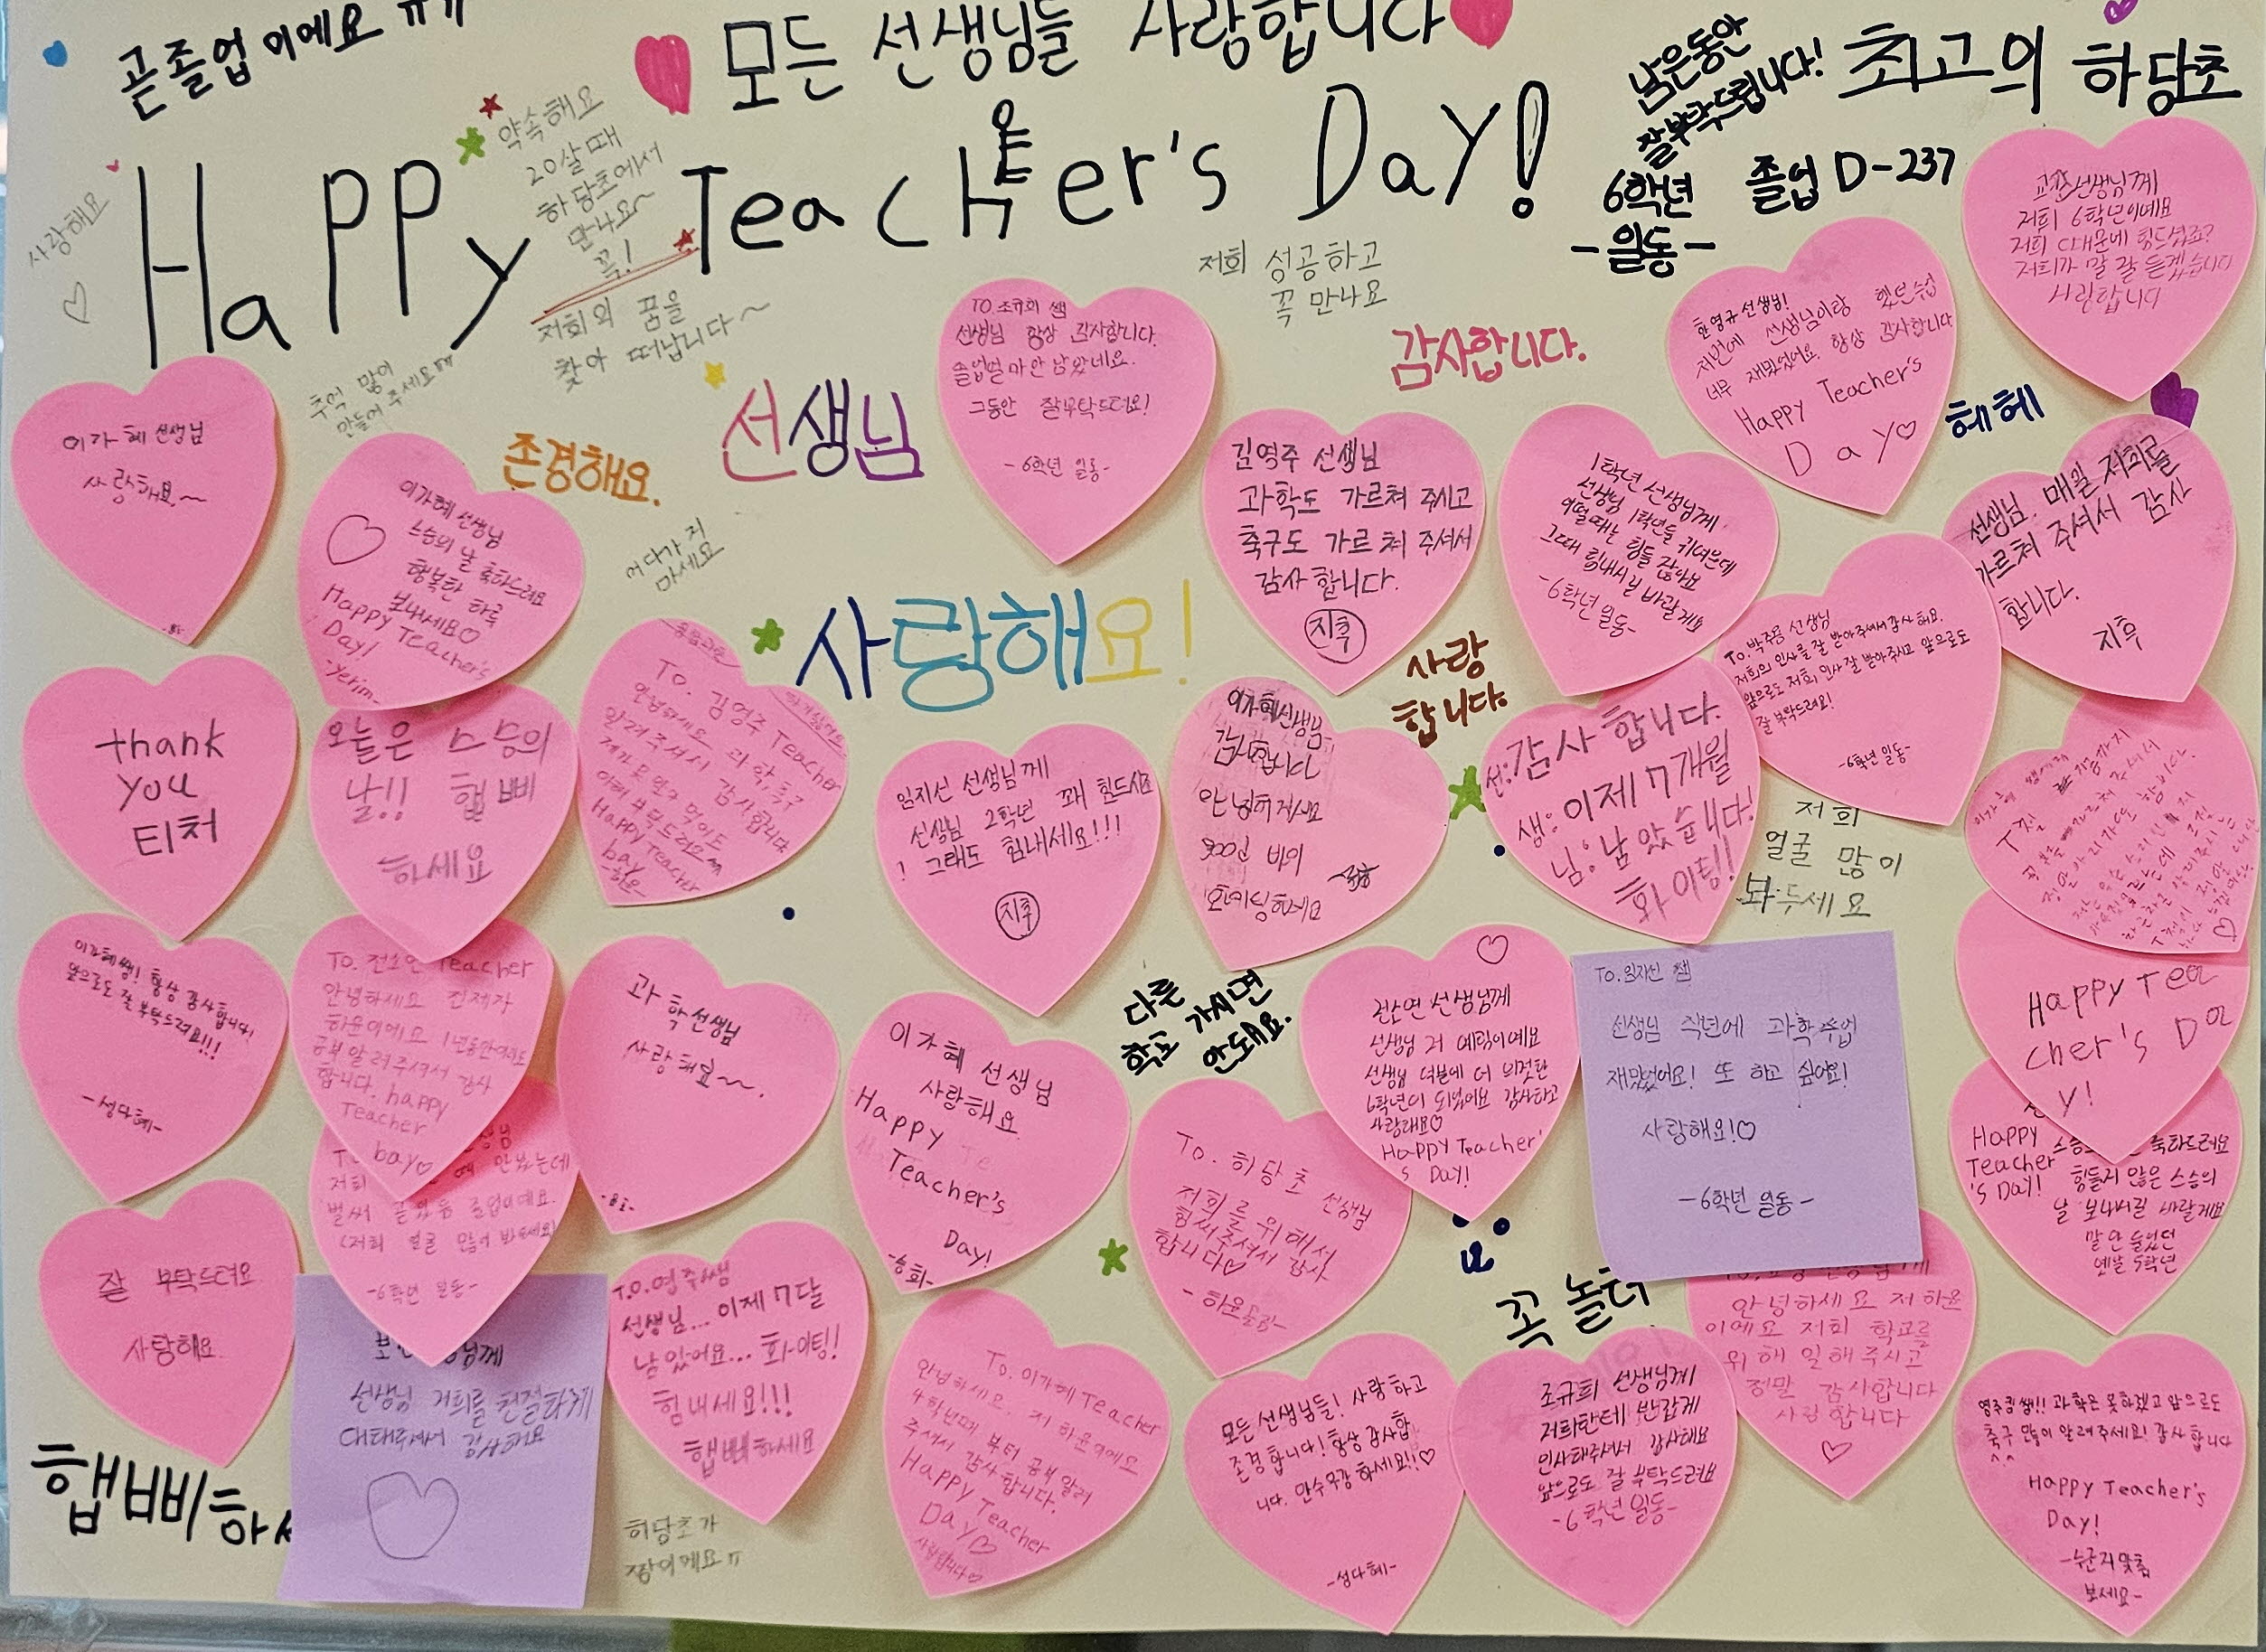 곧졸업이에요 ㅠㅠ
모든 선생님들 사랑합니다
남은동안
잘부탁드립니다!
6학년
-일동-
최고의 하당초
졸업 D-237
Happy Teacher's Day!
사랑해요
약속해요
20살때
하당초에서
만나요~
꼭!
저희의 꿈을
찾아 떠납니다~
추억 많이
만들어 주세요
저희 성공하고
꼭 만나요
감사합니다.
선생님
존경해요.
사랑해요!
사랑
합니다.
헤헤
이가혜 선생님
사랑해요~
이가혜 선생님
스승의 날 축하드려요
행복한 하루
보내세요♡
Happy Teacher's
Day!
-yerim-
TO.조규희 쌤
선생님 항상 감사합니다.
졸업얼마안남았네요.
그동안 잘부탁드려요!
-6학년 일동-
김영주 선생님
과학도 가르쳐 주시고
축구도 가르쳐 주셔서
감사합니다.
지후
1학년 선생님께
선생님 1학년들 귀여운데
어떨때는 힘들잖아요
그때 힘내시길 바랄게요
-6학년 일동-
한영규선생님!
저번에 선생님이랑 했던수업
너무 재밌었어요. 항상 감사합니다
Happy Teacher's
Day♡
교장선생님께
저희 6학년이에요
저희 때문에 힘드셨죠?
저희가 말 잘 듣겠습니다
사랑합니다
선생님. 매일 저희를
가르쳐 주셔서 감사
합니다.
지후
To.박주용 선생님
저희의 인사를 잘 받아주셔서감사해요.
앞으로도 저희 인사 잘 받아주시고 앞으로도
잘 부탁드려요!
-6학년 일동-
thank
you
티처
오늘은 스승의
날!! 햅삐
하세요
To. 김영주 Teacher
안녕하세요. 과학,축구
알려주셔서 감사합니다
Happy Teacher
임지선 선생님께
선생님 2학년 꽤 힘드시죠
! 그래도 힘내세요!!!
지후
이가혜선생님
감사합니다
선:감사합니다.
생:이제7개월
님:남았습니다!
화이팅!
저희
얼굴 많이
봐두세요
이가혜쌤! 항상 감사합니다!
앞으로도 잘 부탁드려요!!!
-성다혜-
To. 전소연 Teacher
안녕하세요 전제자
하윤이에요 1년동안
공부알려주셔서 감사
합니다. happy
Teacher
bay♡
과학선생님
사랑해요~~.
이가혜 선생님
사랑해요
Happy
Teacher's
Day!
다른
학교 가시면
안돼요.
전소연 선생님께
선생님 저 예림이에요
선생님 덕분에 더 의젓한
6학년이 되었어요 감사하고
사랑해요♡
Happy Teacher'
s Day!
TO.임지선 쌤
선생님 작년에 과학수업
재밌었어요! 또 하고 싶어요!
사랑해요!♡
-6학년 일동-
Happy Tea
cher's Da
y!
Happy
Teacher
's Day!
힘들지 않은 스승의
날 보내시길 바랄게요
말 안 들었던
옛날 5학년
잘 부탁드려요
사랑해요
벌써 졸업이에요.
-6학년 일동-
선생님 저희를 친절하게
대해주셔서 감사해요
햅삐하
T.O.영주쌤
선생님... 이제 7달
남았어요... 화이팅!
힘내세요!!!
햅삐하세요
하당초가
짱이에요ㅠ
To. 하당초 선생님
저희를 위해서
힘써주셔서 감사
합니다♡
To. 이가혜 Teacher
안녕하세요. 저 하윤이에요
4학년때 부터 공부 알려
주셔서 감사합니다.
Happy Teacher
Day♡
사랑합니다♡
꼭 놀러
모든선생님들! 사랑하고
존경합니다! 항상 감사합
니다. 만수무강 하세요!!♡
-성다혜-
조규희 선생님께
저희한테 반갑게
인사해주셔서 감사해요
앞으로도 잘 부탁드려요
-6학년일동-
안녕하세요 저 하윤
이에요 저희 학교를
위해 일해주시고
정말 감사합니다
사랑합니다
영주킴쌤!! 과학은 못하겠고 앞으로도
축구 많이 알려주세요! 감사합니다
Happy Teacher's
Day!
-누군지맞춰
보세요-